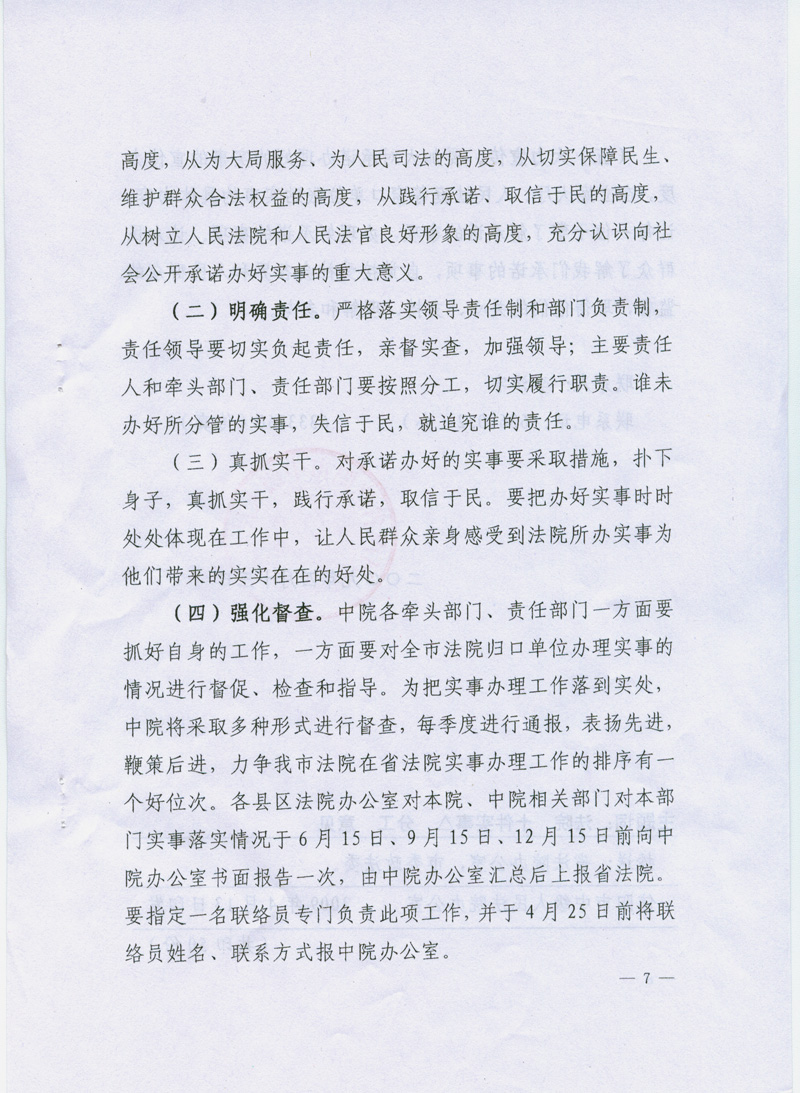 高度，从为大局服务、为人民司法的高度，从切实保障民生、
维护群众合法权益的高度，从践行承诺、取信于民的高度，
从树立人民法院和人民法官良好形象的高度，充分认识向社
会公开承诺办好实事的重大意义。
（二）明确责任。严格落实领导责任制和部门负责制，
责任领导要切实负起责任，亲督实查，加强领导；主要责任
人和牵头部门、责任部门要按照分工，切实履行职责。谁未
办好所分管的实事，失信于民，就追究谁的责任。
（三）真抓实干。对承诺办好的实事要采取措施，扑下
身子，真抓实干，践行承诺，取信于民。要把办好实事时时
处处体现在工作中，让人民群众亲身感受到法院所办实事为
他们带来的实实在在的好处。
（四）强化督查。中院各牵头部门、责任部门一方面要
抓好自身的工作，一方面要对全市法院归口单位办理实事的
情况进行督促、检查和指导。为把实事办理工作落到实处，
中院将采取多种形式进行督查，每季度进行通报，表扬先进，
鞭策后进，力争我市法院在省法院实事办理工作的排序有一
个好位次。各县区法院办公室对本院、中院相关部门对本部
门实事落实情况于 6 月 15 日、9 月 15 日、12 月 15 日前向中
院办公室书面报告一次，由中院办公室汇总后上报省法院。
要指定一名联络员专门负责此项工作，并于 4 月 25 日前将联
络员姓名、联系方式报中院办公室。
— 7 —